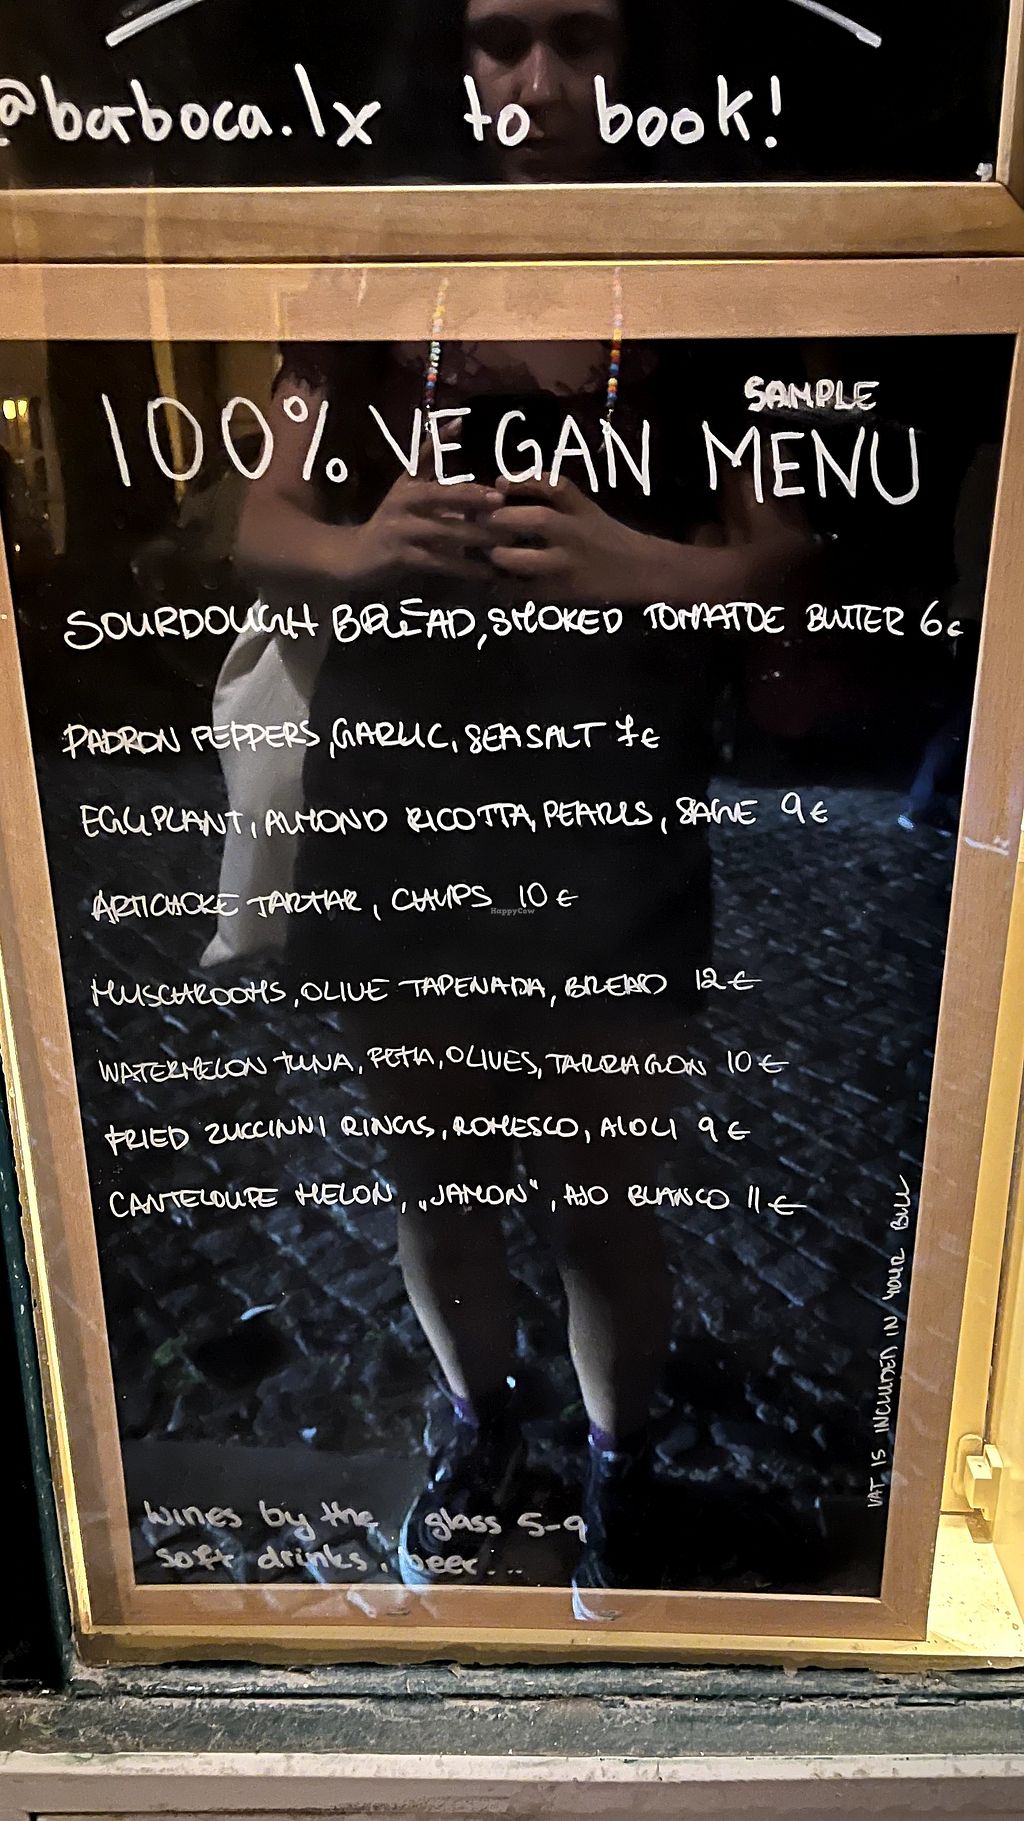 @barboca.lx to book!
SAMPLE
100% VEGAN MENU
SOURDOUGH BREAD, SMOKED TOMATOE BUTTER 6€
PADRON PEPPERS, GARLIC, SEASALT 7€
EGGPLANT, ALMOND RICOTTA, PEARLS, SAGE 9€
ARTICHOKE TARTAR, CHIPS 10€
HappyCow
MUSCHROOMS, OLIVE TAPENADA, BREAD 12€
WATERMELON TUNA, FETA, OLIVES, TARRAGON 10€
FRIED ZUCCINNI RINGS, ROMESCO, AIOLI 9€
CANTELOUPE MELON, „JAMON", AJO BLANCO 11€
VAT IS INCLUDED IN YOUR BILL
wines by the glass 5-9
soft drinks, beer...